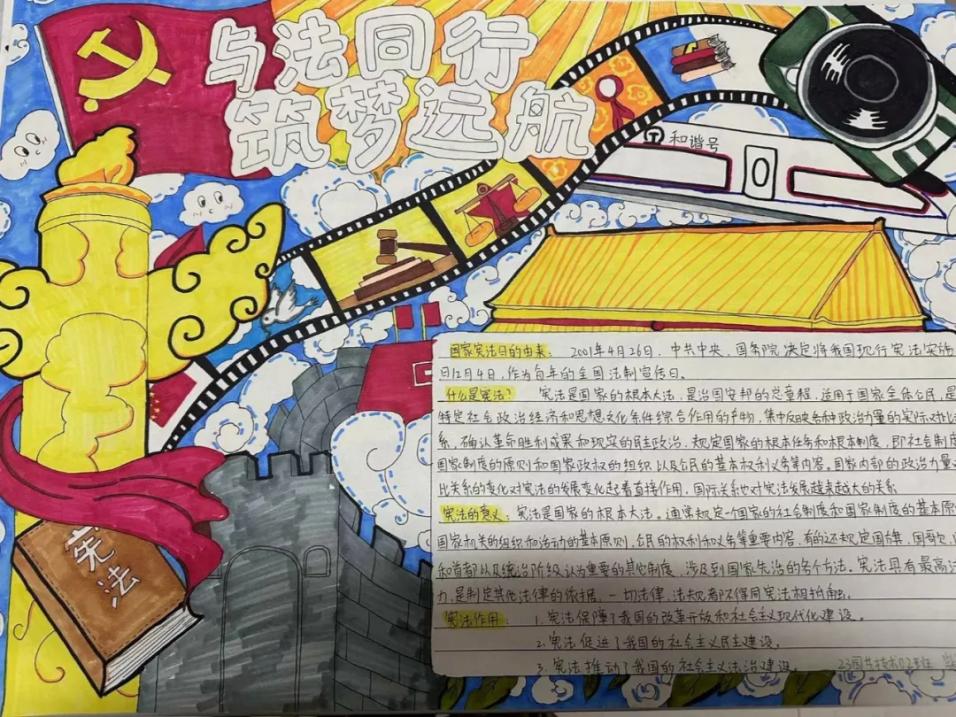 与法同行
筑梦远航
和谐号
宪法
国家宪法日的由来：2001年4月26日，中共中央、国务院决定将我国现行宪法实施
日12月4日，作为每年的全国法制宣传日。
什么是宪法？ 宪法是国家的根本大法，是治国安邦的总章程，适用于国家全体公民，是
特定社会政治经济和思想文化条件综合作用的产物，集中反映各种政治力量的实际对比
系，确认革命胜利成果和现实的民主政治，规定国家的根本任务和根本制度，即社会制度
国家制度的原则和国家政权的组织以及公民的基本权利义务等内容。国家内部的政治力量
比关系的变化对宪法的发展变化起着直接作用，国际关系也对宪法发展越来越大的关系
宪法的意义：宪法是国家的根本大法。通常规定一个国家的社会制度和国家制度的基本原
国家机关的组织和活动的基本原则，公民的权利和义务等重要内容，有的还规定国旗、国歌、
和首都以及统治阶级认为重要的其他制度，涉及到国家生活的各个方法。宪法具有最高
力，是制定其他法律的依据，一切法律、法规都不得同宪法相抵触。
宪法作用： 1. 宪法保障了我国的改革开放和社会主义现代化建设。
2. 宪法促进了我国的社会主义民主建设。
3. 宪法推动了我国的社会主义法治建设。